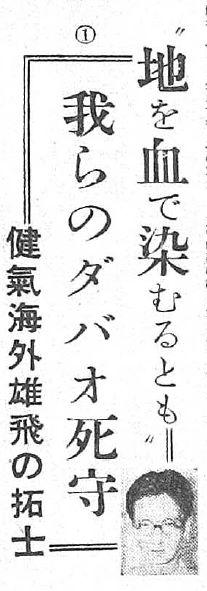 ①
〝地を血で染むるとも〟
我らのダバオ死守
健氣海外雄飛の拓士